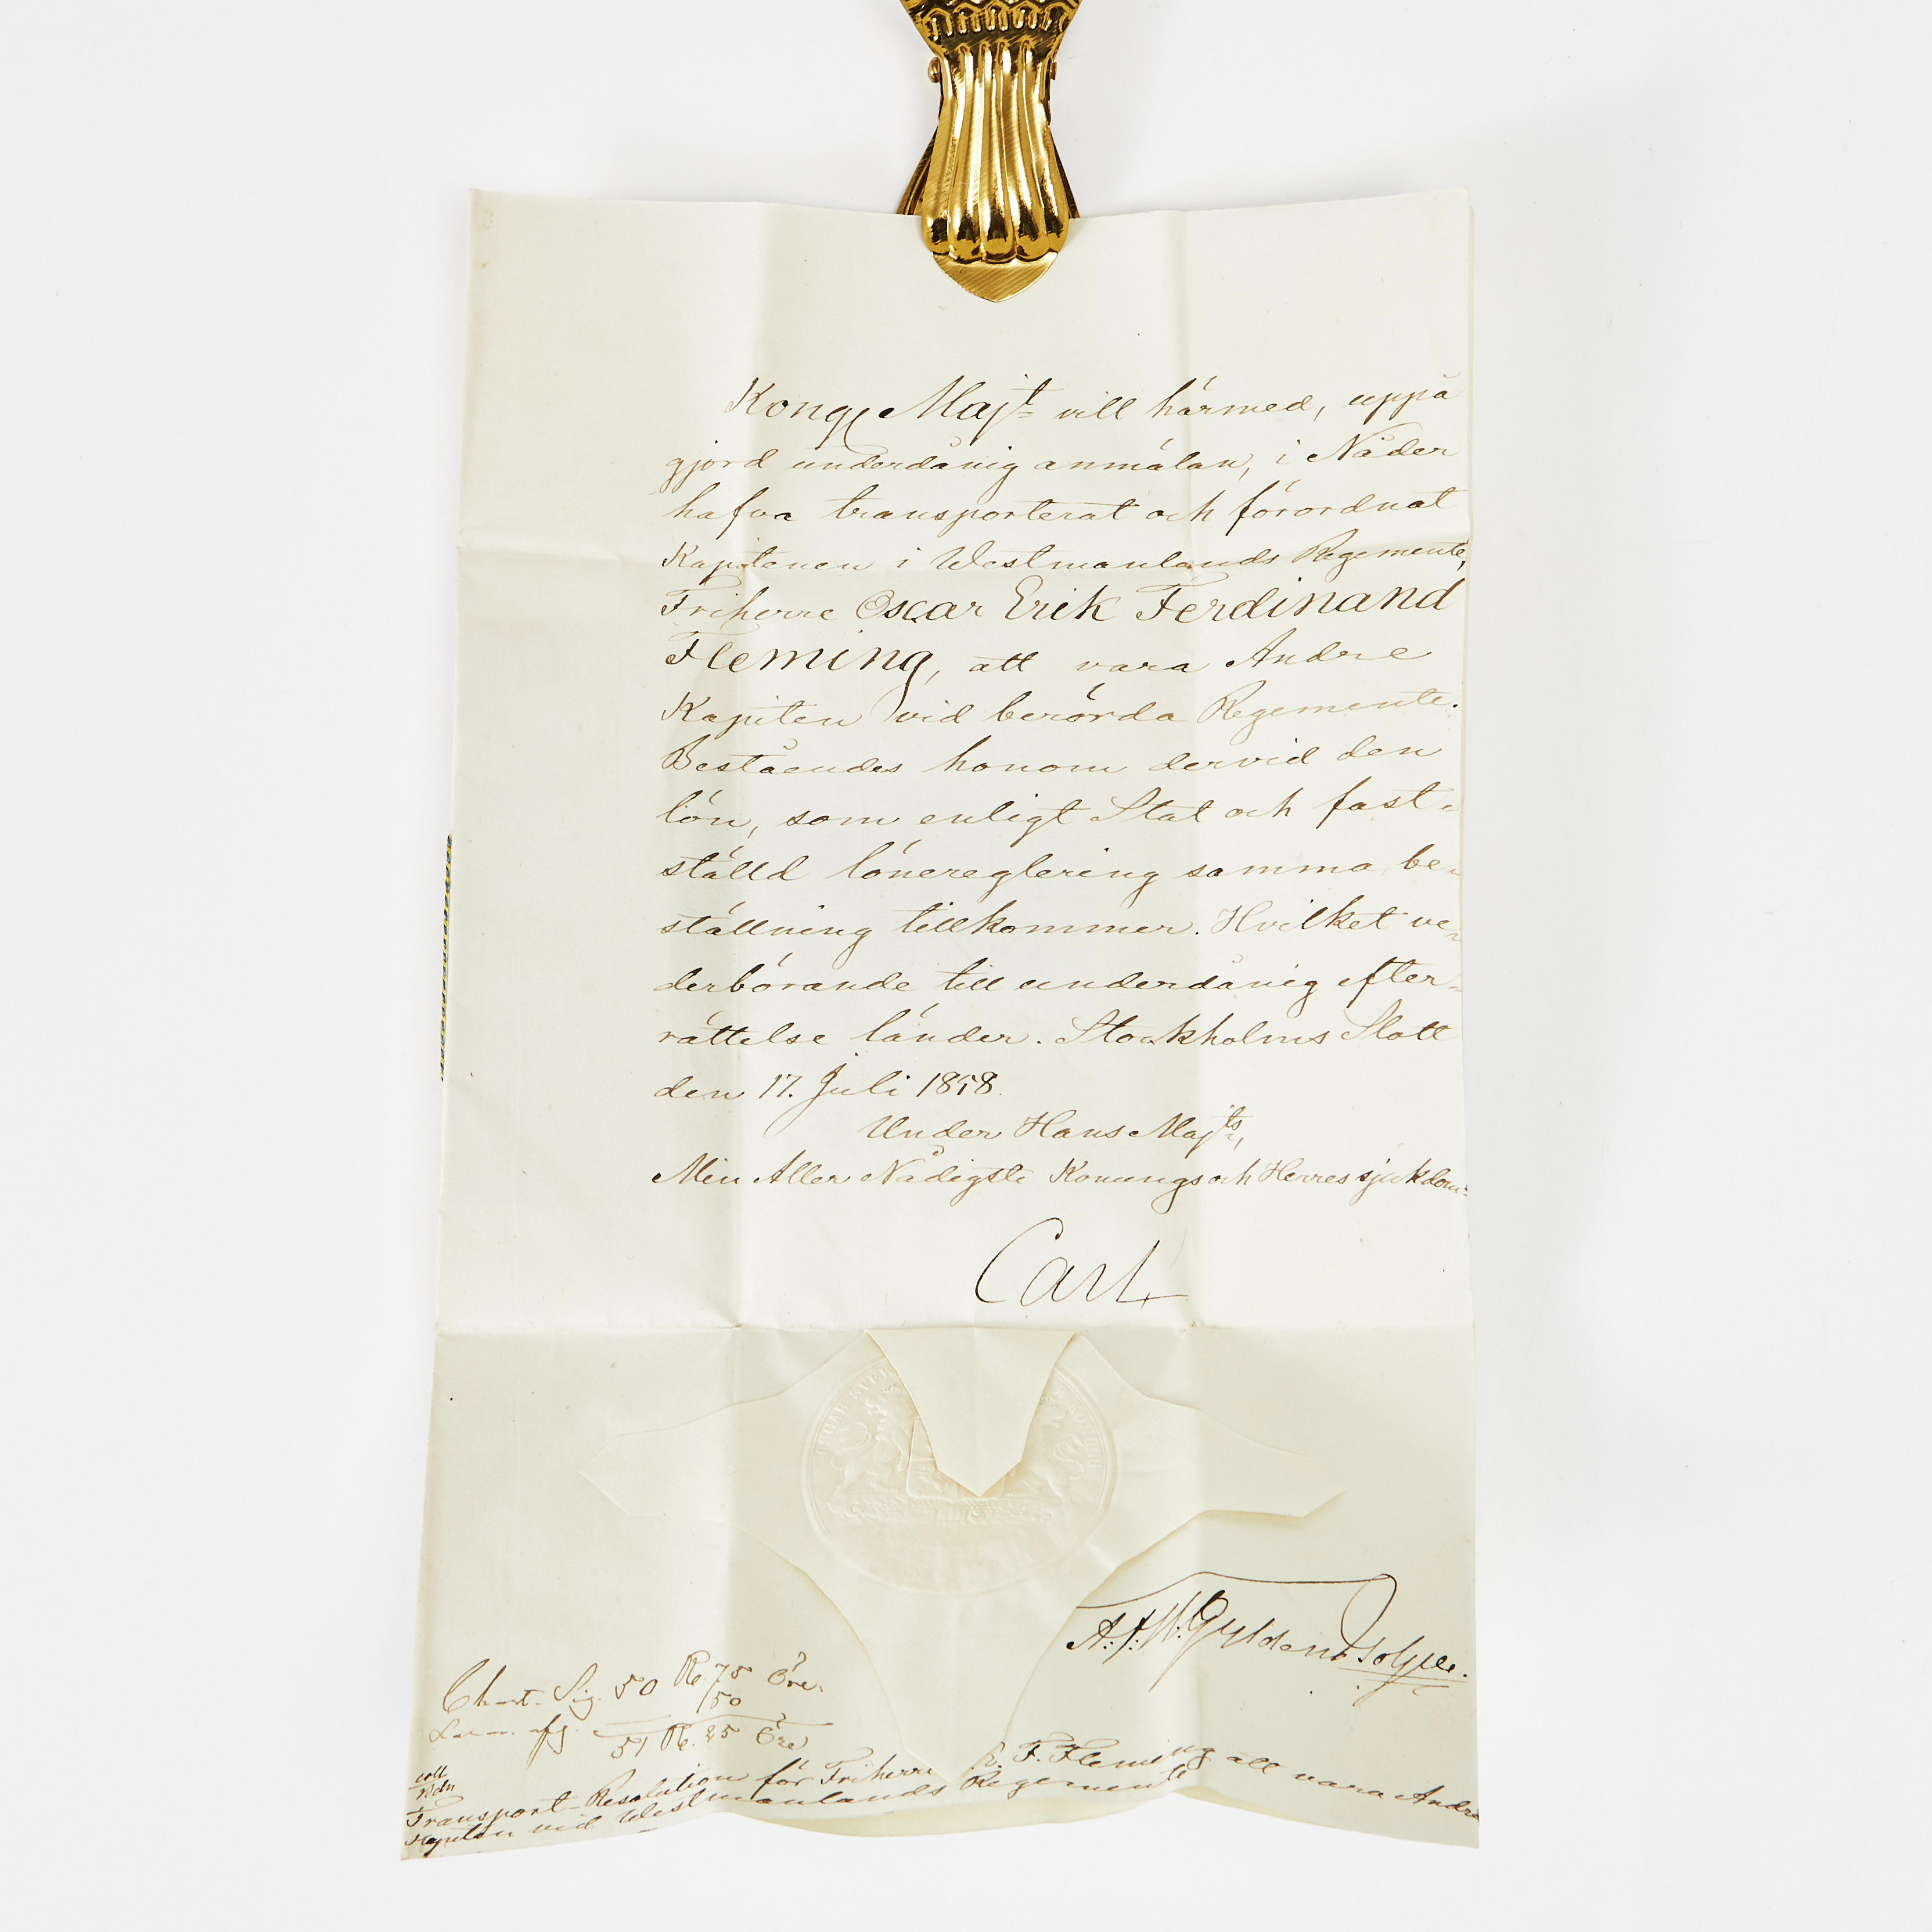 Kongl. Majt vill härmed, uppå
gjord underdånig anmälan, i Nåder
hafva transporterat och förordnat
Kapitenen i Westmanlands Regemente,
Friherre Oscar Erik Ferdinand
Fleming, att vara Andre
Kapiten vid berörda Regemente.
Beståendes honom dervid den
lön, som enligt Stat och fast-
ställd lönereglering samma be-
ställning tillkommer. Hvilket ve-
derbörande till underdånig efter-
rättelse länder. Stockholms Slott
den 17. Juli 1858.
Under Hans Majts,
Min Aller Nådigste Konungs och Herres sjukdom:
Carl
OSCAR SVER
A.F.N. Gyldenstolpe.
Chart. Sig. 50 R. 75 Öre.
50
51 R. 25 Öre
coll
Transport-Resolution för Friherre E. F. Fleming att vara Andre
Kapiten vid Westmanlands Regemente